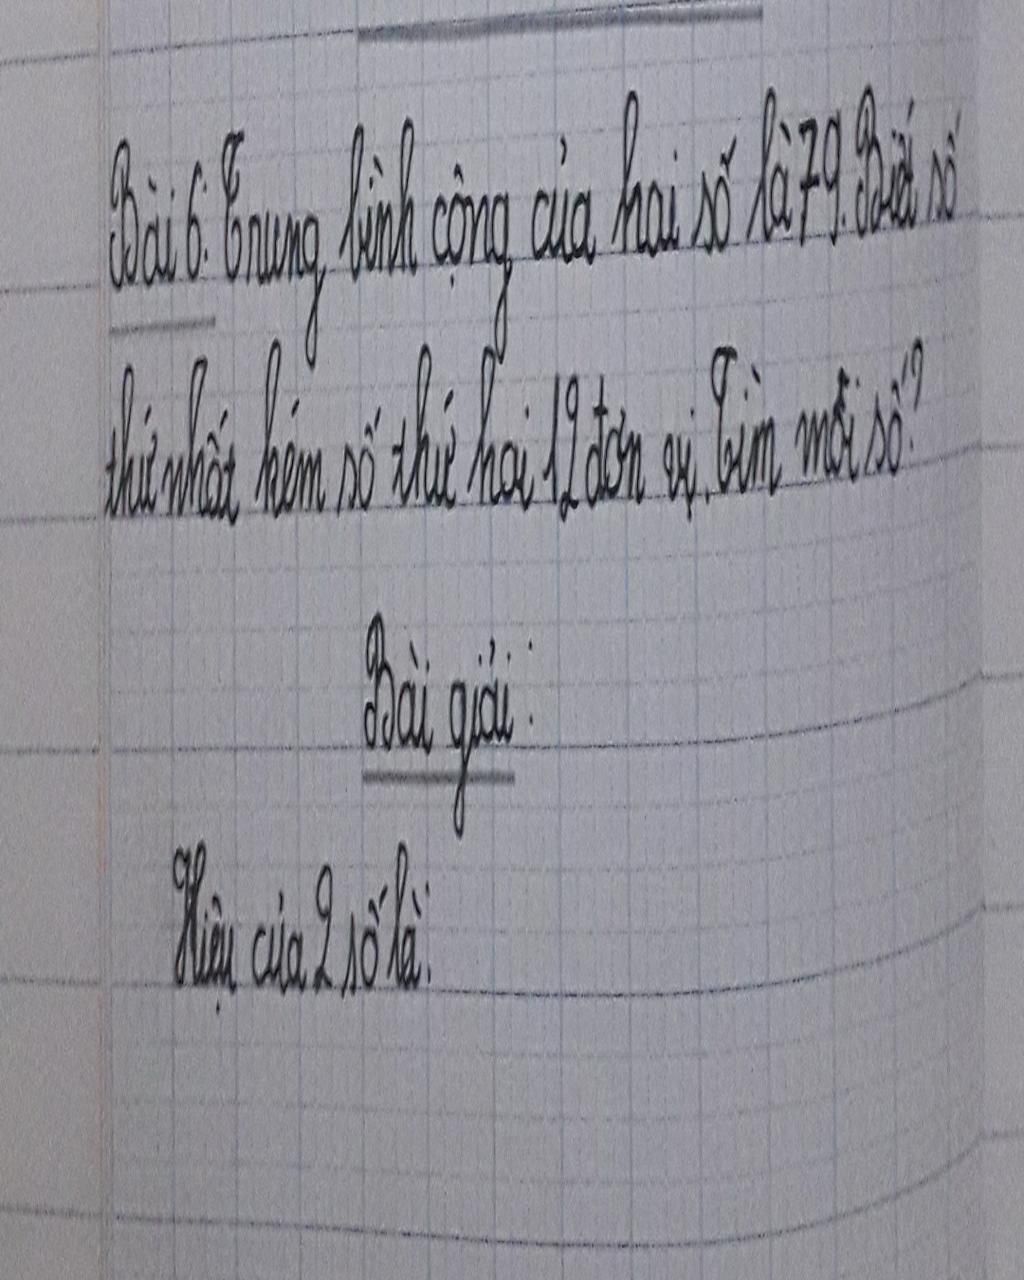 Bài 6. Trung bình cộng của hai số là 79. Biết số
thứ nhất kém số thứ hai 12 đơn vị. Tìm mỗi số?
Bài giải:
Hiệu của 2 số là: